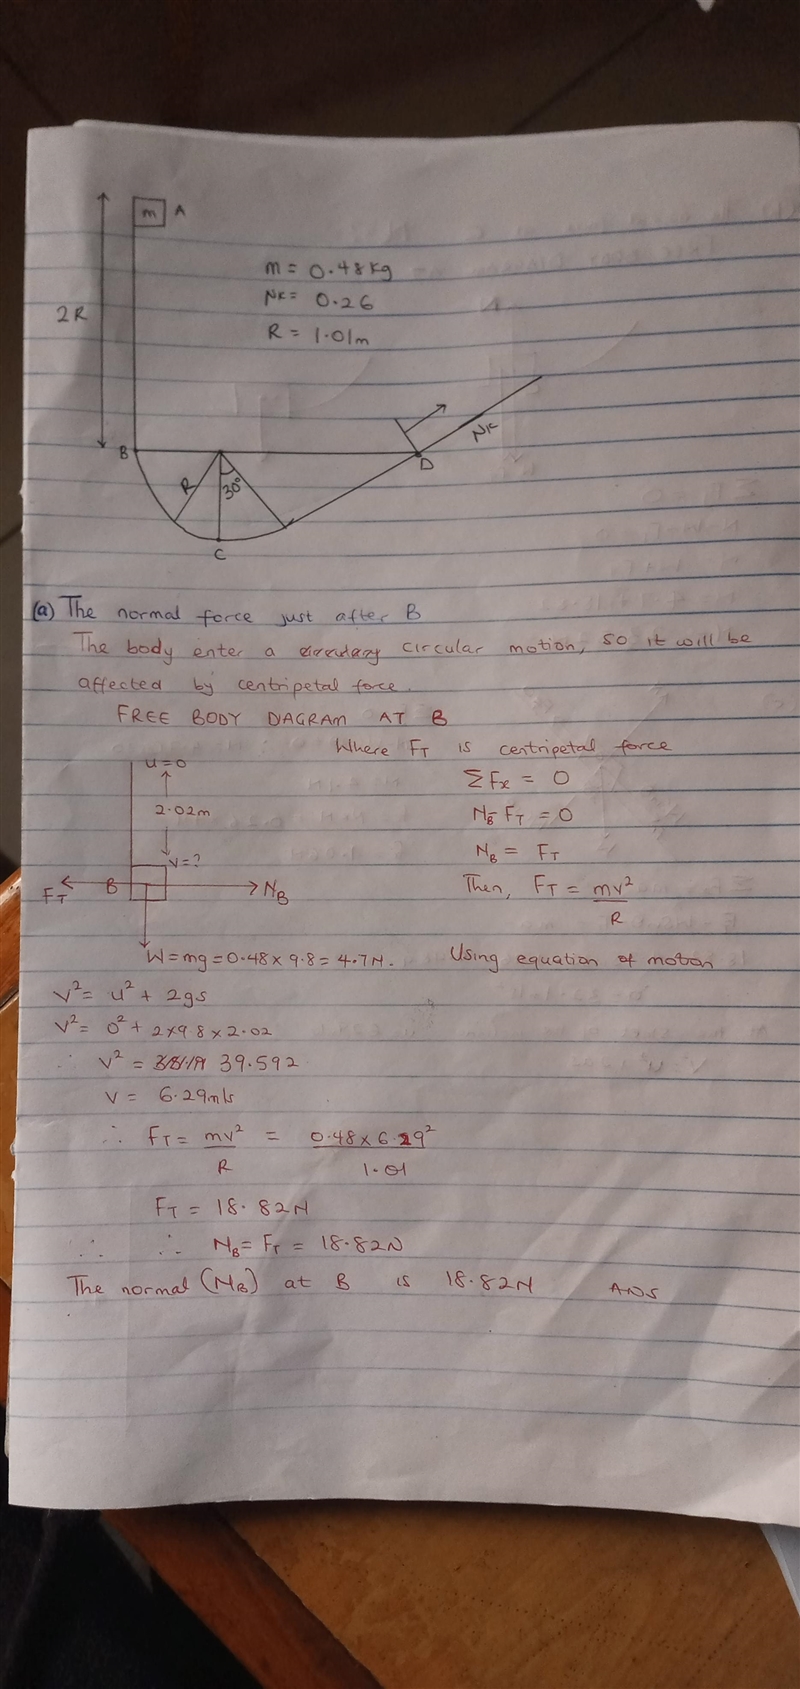 m A
m = 0.48kg
NK = 0.26
2R
R = 1.01m
NK
B
D
R
30°
C
(a) The normal force just after B
The body enter a circular motion, so it will be
affected by centripetal force.
FREE BODY DAGRAM AT B
Where FT is centripetal force
u=0
ΣFx = 0
2.02m
NB - FT = 0
v=?
NB = FT
FT B NB
Then, FT = mv²
R
W = mg = 0.48 x 9.8 = 4.7N. Using equation of motion
v² = u² + 2gs
v² = 0² + 2x9.8 x 2.02
∴ v² = 39.592
v = 6.29m/s
∴ FT = mv² = 0.48 x 6.29²
R 1.01
FT = 18.82N
∴ ∴ NB = FT = 18.82N
The normal (NB) at B is 18.82N ANS